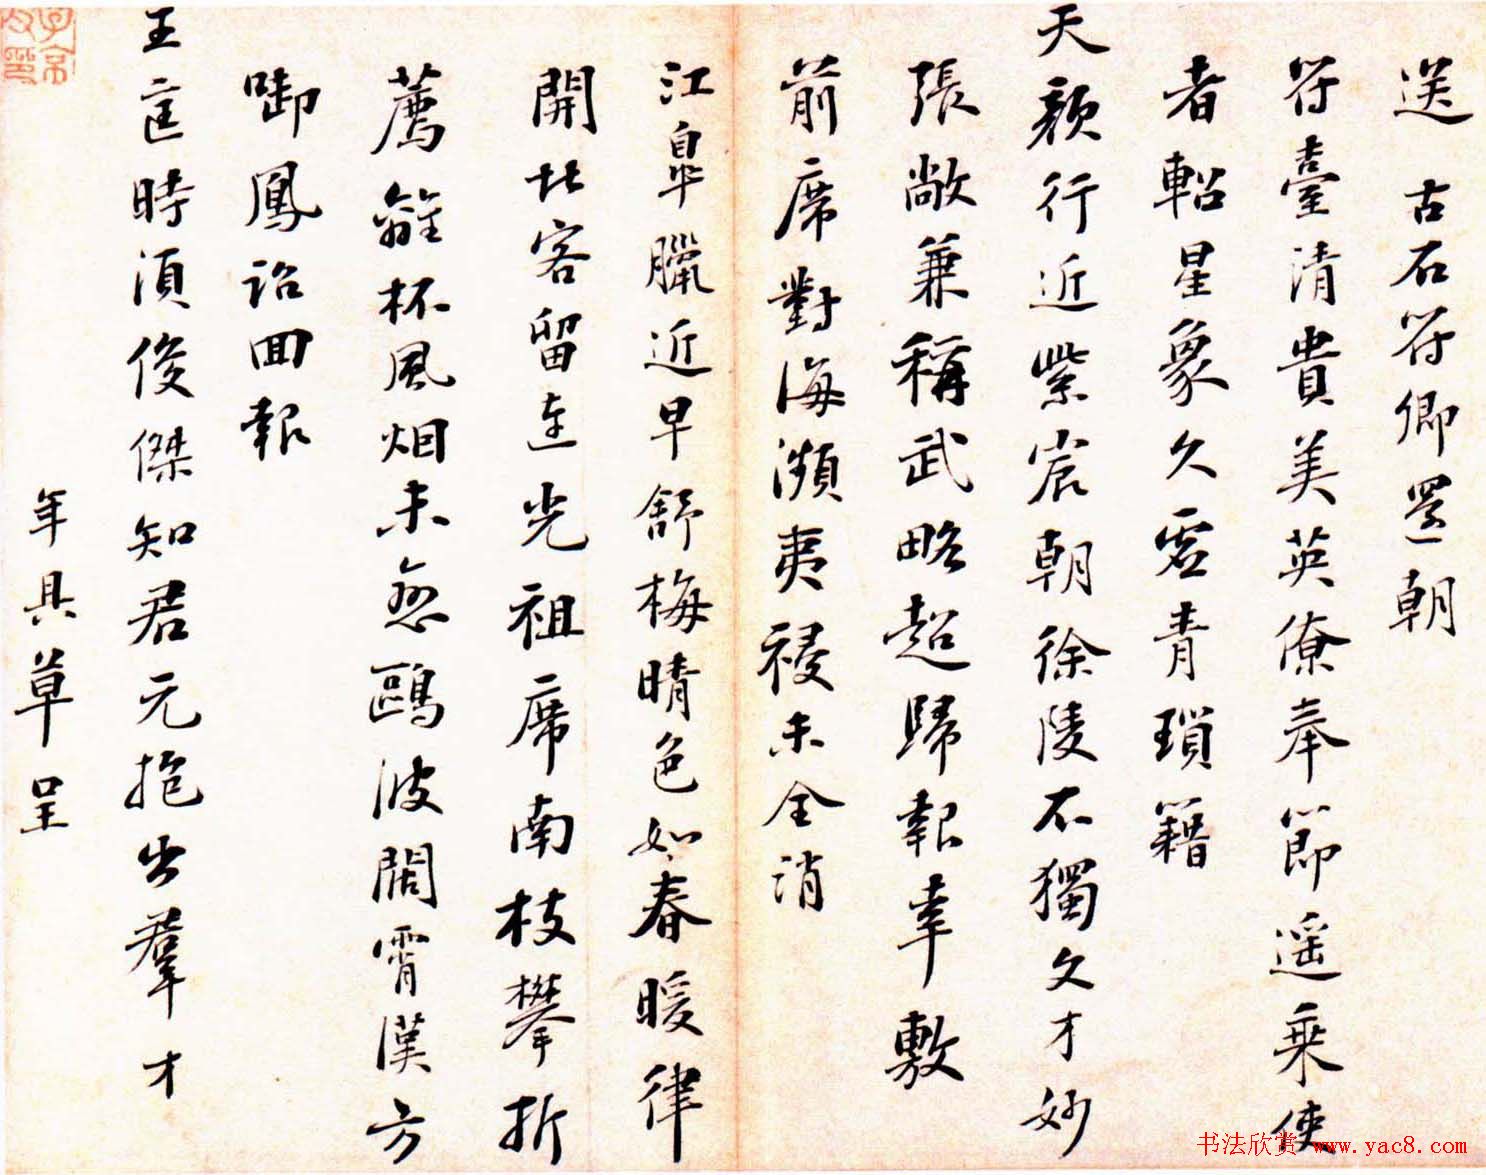 送古石符卿還朝
符臺清貴美英僚奉節遥乘使
者軺星象久宻青瑣籍
天顔行近紫宸朝徐陵不獨文才妙
張敞兼稱武略超歸報幸敷
前席對海瀕夷祲未全消
江臯臘近早舒梅晴色如春暖律
開北客留連光祖席南枝攀折
薦離杯風烟未愈鷗波闊霄漢方
啣鳳詔回報
王定時須俊傑知君元抱出羣才
年具草呈
书法欣赏 www.yac8.com